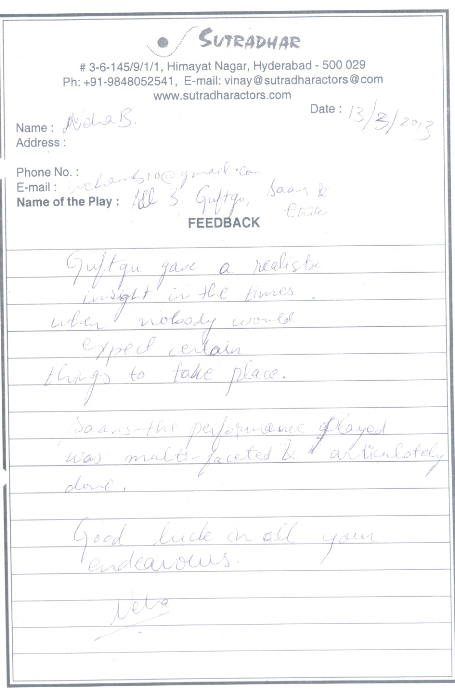 SUTRADHAR
# 3-6-145/9/1/1, Himayat Nagar, Hyderabad - 500 029
Ph: +91-9848052541, E-mail: vinay@sutradharactors@com
www.sutradharactors.com
Date : 13/3/2013
Name : Neha B.
Address :
Phone No. :
E-mail : @gmail.com
Name of the Play : All 3 Guftgu, Saans &
FEEDBACK
Guftgu gave a realistic
insight in the times.
when nobody would
expect certain
things to take place.
Saans-the performance played
was multi-faceted & articulately
done.
Good luck in all your
endeavours.
Neha